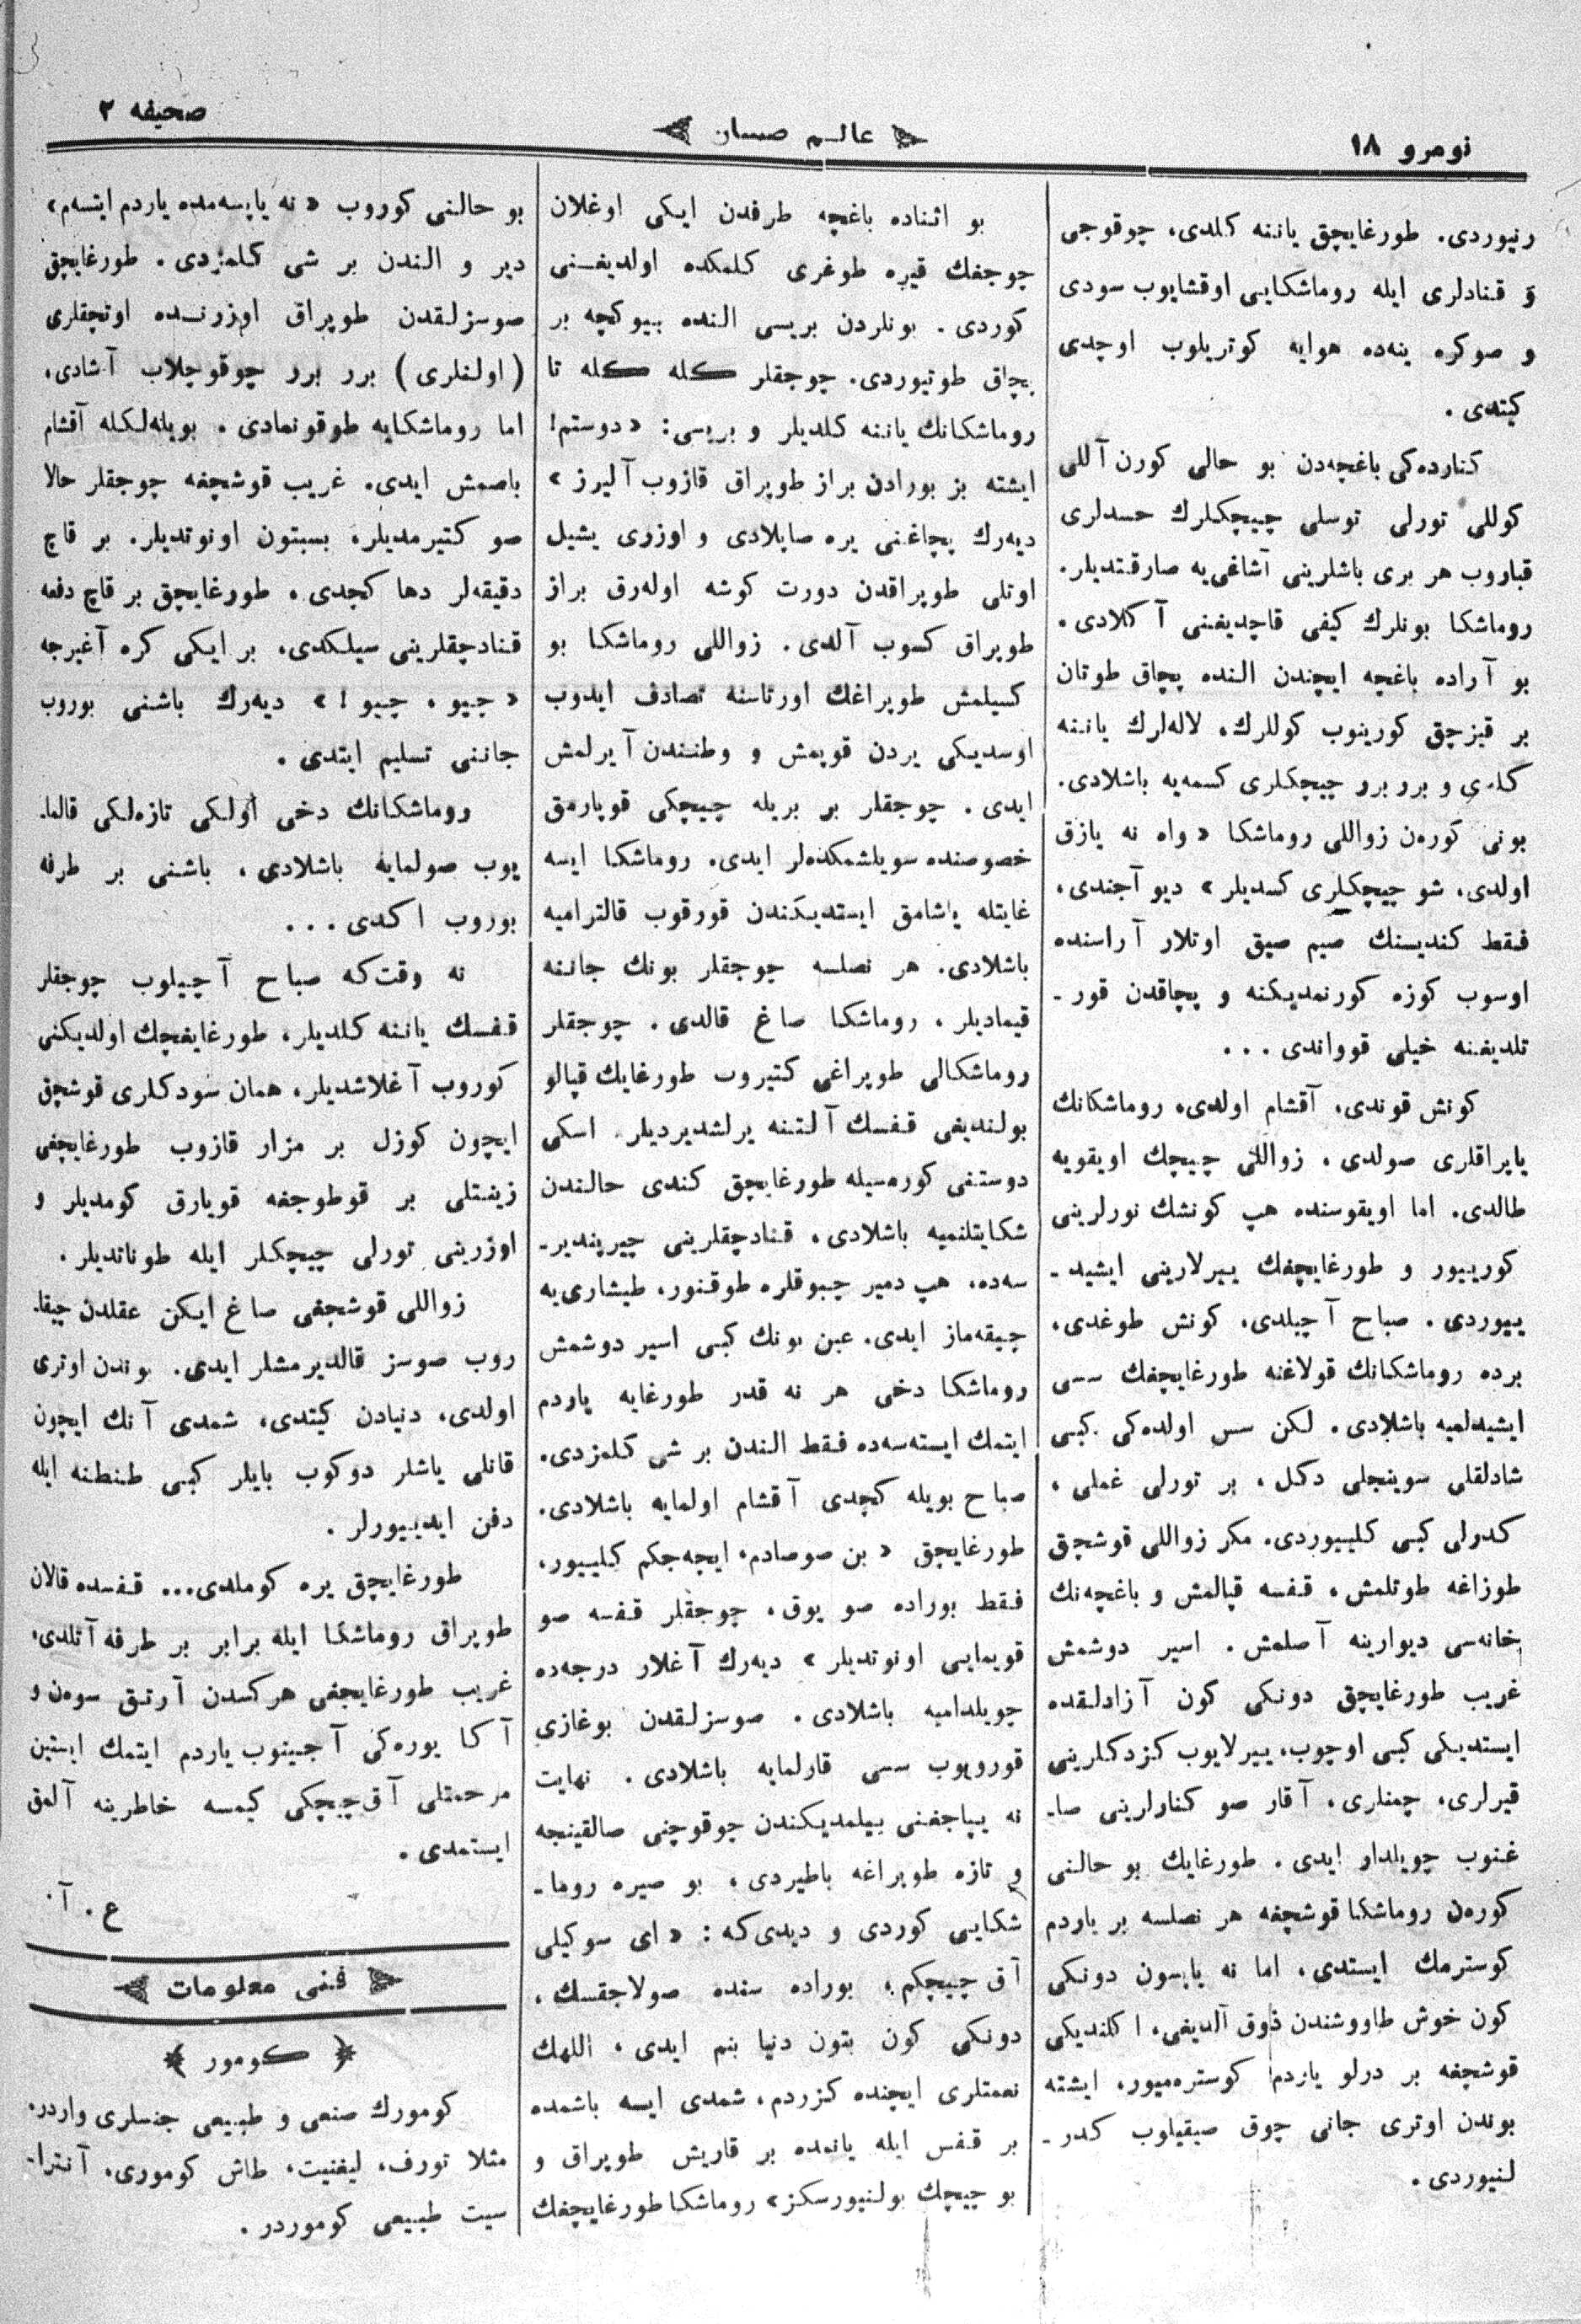 نومرو ١٨
عالم صبيان
صحيفه ٢
رنيوردى. طورغايچق ياننه كلدى، چوقوجى
و قنادلرى ايله روماشكايى اوقشايوب سودى
و صوكره ينه‌ده هوايه كوتريلوب اوچدى
كيتدى.
كنارده‌كى باغچه‌دن بو حالى كورن آللى
كوللى تورلى توسلى چيچكلرك حسدلرى
قباروب هر برى باشلرينى آشاغى‌يه صارقتديلر.
روماشكا بونلرك كيفى قاچديغنى آكلادى.
بو آراده باغچه ايچندن النده پچاق طوتان
بر قيزچق كورينوب كوللرك، لاله‌لرك ياننه
كلدى و برر برر چيچكلرى كسمه‌يه باشلادى.
بونى كوره‌ن زواللى روماشكا «واه نه يازق
اولدى، شو چيچكلرى كسديلر» ديو آجندى،
فقط كنديسنك صيم صيق اوتلار آراسنده
اوسوب كوزه كورنمديكنه و پچاقدن قور-
تلديغنه خيلى قوواندى...
كونش قوندى، آقشام اولدى، روماشكانك
ياپراقلرى صولدى، زواللى چيچك اويقويه
طالدى. اما اويقوسنده هپ كونشك نورلرينى
كورييور و طورغايچغك ييرلارينى ايشيد-
ييوردى. صباح آچيلدى، كونش طوغدى،
برده روماشكانك قولاغنه طورغايچغك سسى
ايشيدلميه باشلادى. لكن سس اولده‌كى كبى
شادلقلى سوينچلى دكل، بر تورلى غملى،
كدرلى كبى كلييوردى. مكر زواللى قوشچق
طوزاغه طوتلمش، قفسه قپالمش و باغچه‌نك
خانه‌سى ديوارينه آصلمش. اسير دوشمش
غريب طورغايچق دونكى كون آزادلقده
ايستديكى كبى اوچوب، ييرلايوب كزدكلرينى
قيرلرى، چمنلرى، آقار صو كنارلرينى صا-
غنوب چويلدار ايدى. طورغايك بو حالنى
كوره‌ن روماشكا قوشچغه هر نصلسه بر ياردم
كوسترمك ايستدى، اما نه ياپسون دونكى
كون خوش طاووشندن ذوق آلديغى، اكلنديكى
قوشچغه بر درلو ياردم كوستره‌ميور، ايشته
بوندن اوترى جانى چوق صيقيلوب كدر-
لنيوردى.
بو اثناده باغچه طرفدن ايكى اوغلان
چوجغك قيره طوغرى كلمكده اولديغنى
كوردى. بونلردن بريسى النده بيوكچه بر
پچاق طوتيوردى. چوجقلر كله كله تا
روماشكانك ياننه كلديلر و بريسى: «دوستم!
ايشته بز بورادن براز طوپراق قازوب آليرز»
ديه‌رك پچاغنى يره صاپلادى و اوزرى يشيل
اوتلى طوپراقدن دورت كوشه اوله‌رق براز
طوپراق كسوب آلدى. زواللى روماشكا بو
كسيلمش طوپراغك اورتاسنه تصادف ايدوب
اوسديكى يردن قوپمش و وطنندن آيرلمش
ايدى. چوجقلر بر بريله چيچكى قوپارمق
خصوصنده سويلشمكده‌لر ايدى. روماشكا ايسه
غايتله ياشامق ايستديكندن قورقوب قالتراميه
باشلادى. هر نصلسه چوجقلر بونك جاننه
قيماديلر، روماشكا صاغ قالدى. چوجقلر
روماشكالى طوپراغى كتيروب طورغايك قپالو
بولنديغى قفسك آلتنه يرلشديرديلر. اسكى
دوستنى كوره‌سيله طورغايچق كندى حالندن
شكايتلنميه باشلادى، قنادچقلرينى چيرپندير-
سه‌ده، هپ دمير چبوقلره طوقنور، طيشارى‌يه
چيقه‌ماز ايدى. عين بونك كبى اسير دوشمش
روماشكا دخى هر نه قدر طورغايه ياردم
ايتمك ايسته‌سه‌ده فقط الندن بر شى كلمزدى.
صباح بويله كچدى آقشام اولمايه باشلادى.
طورغايچق «بن صوصادم، ايچه‌جكم كلييور،
فقط بوراده صو يوق، چوجقلر قفسه صو
قويمايى اونوتديلر» ديه‌رك آغلار درجه‌ده
چويلداميه باشلادى. صوسزلقدن بوغازى
قورويوب سسى قارلمايه باشلادى. نهايت
نه يپاجغنى بيلمديكندن چوقوچنى صالقينجه
و تازه طوپراغه باطيردى، بو صيره روما-
شكايى كوردى و ديدى‌كه: «اى سوكيلى
آق چيچكم، بوراده سنده صولاجقسك،
دونكى كون بتون دنيا بنم ايدى، اللهك
نعمتلرى ايچنده كزردم، شمدى ايسه باشمده
بر قفس ايله يانمده بر قاريش طوپراق و
بو چيچك بولنيورسكز» روماشكا طورغايچغك
بو حالنى كوروب «نه ياپسه‌مده ياردم ايتسه‌م»
دير و الندن بر شى كلمزدى. طورغايچق
صوسزلقدن طوپراق اوزرنده اوتچقلرى
(اولنلرى) برر برر چوقوچلاب آشادى،
اما روماشكايه طوقونمادى. بويله‌لكله آقشام
باصمش ايدى. غريب قوشچغه چوجقلر حالا
صو كتيرمديلر، بسبتون اونوتديلر. بر قاچ
دقيقه‌لر دها كچدى، طورغايچق بر قاچ دفعه
قنادچقلرينى سيلكدى، بر ايكى كره آغيرجه
«چيو، چيو!» ديه‌رك باشنى بوروب
جاننى تسليم ايتدى.
روماشكانك دخى اولكى تازه‌لكى قالما-
يوب صولمايه باشلادى، باشنى بر طرفه
بوروب اكدى...
نه وقت‌كه صباح آچيلوب چوجقلر
قفسك ياننه كلديلر، طورغايغچك اولديكنى
كوروب آغلاشديلر، همان سودكلرى قوشچق
ايچون كوزل بر مزار قازوب طورغايچغى
زينتلى بر قوطوجغه قويارق كومديلر و
اوزرينى تورلى چيچكلر ايله طوناتديلر.
زواللى قوشچغى صاغ ايكن عقلدن چيقا-
روب صوسز قالديرمشلر ايدى. بوندن اوترى
اولدى، دنيادن كيتدى، شمدى آنك ايچون
قانلى ياشلر دوكوب بايلر كبى طنطنه ايله
دفن ايدييورلر.
طورغايچق يره كوملدى... قفسده قالان
طوپراق روماشكا ايله برابر بر طرفه آتلدى،
غريب طورغايچغى هركسدن آرتق سوه‌ن و
آكا يوره‌كى آجينوب ياردم ايتمك ايستين
مرحمتلى آق‌چيچكى كيمسه خاطرينه آلمق
ايستمدى.
ع. آ.
فنى معلومات
كومور
كومورك صنعى و طبيعى جنسلرى واردر.
مثلا تورف، ليغنيت، طاش كومورى، آنترا-
سيت طبيعى كوموردر.